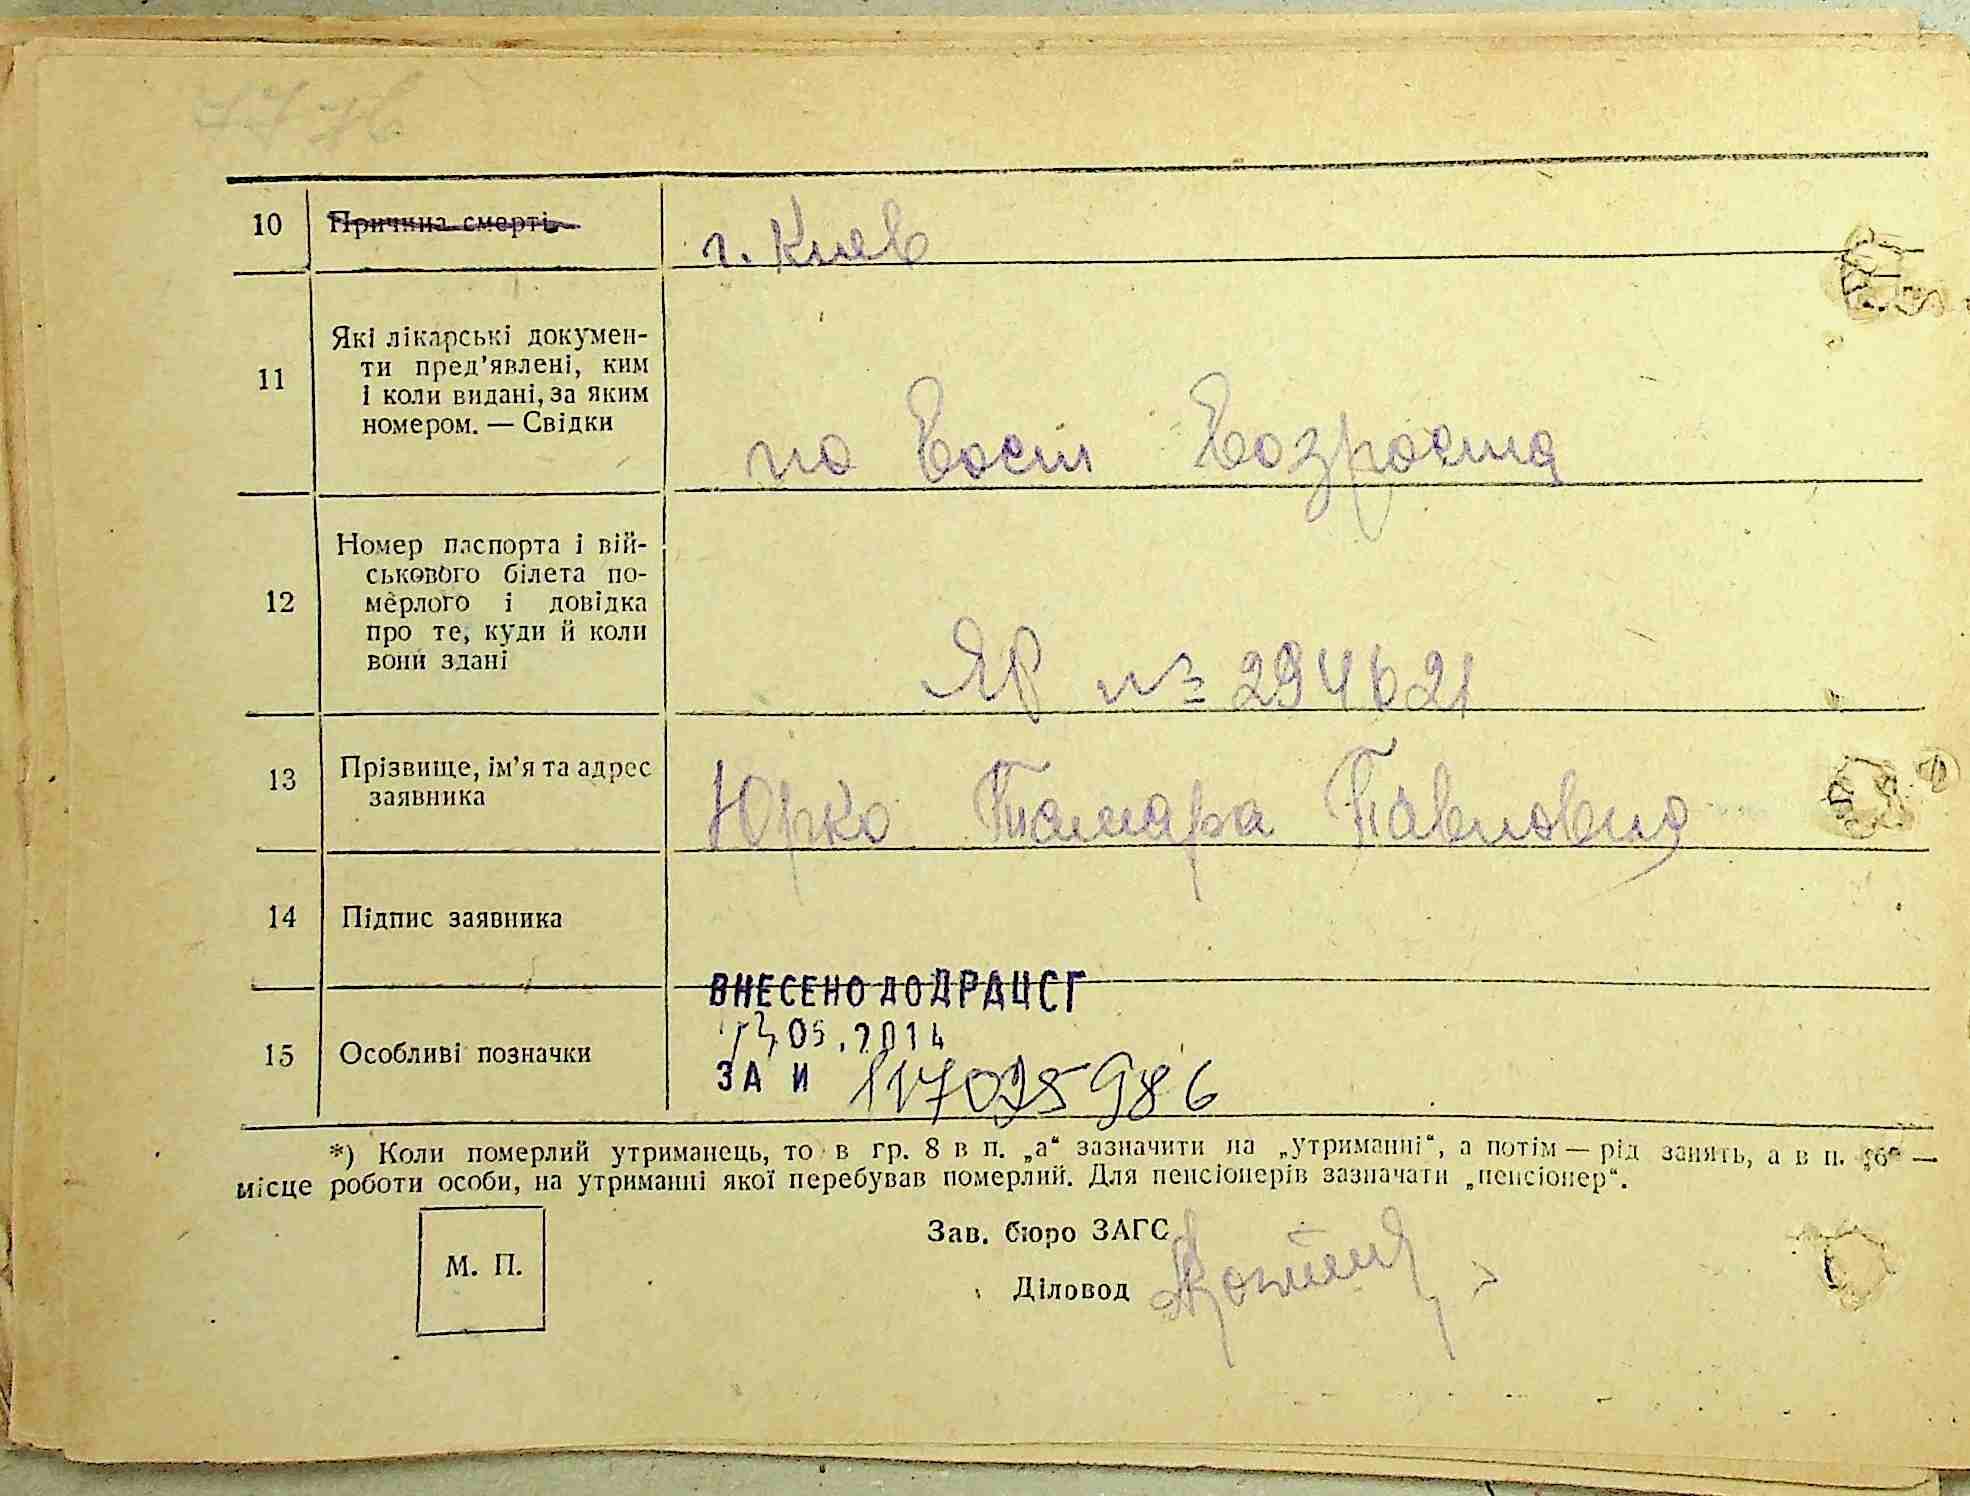 10 Причина смерті г. Киев
11 Які лікарські докумен-
ти пред'явлені, ким
і коли видані, за яким
номером. — Свідки
по Восст Возраста
12 Номер паспорта і вій-
ськового білета по-
мерлого і довідка
про те, куди й коли
вони здані
ЯР № 294621
13 Прізвище, ім'я та адрес
заявника
Юрко Тамара Павловна
14 Підпис заявника
ВНЕСЕНО ДО ДРАЦСГ
05.2014
15 Особливі позначки
ЗА И 117025986
*) Коли померлий утриманець, то в гр. 8 в п. „а“ зазначити на „утриманні“, а потім — рід занять, а в п. „б“ —
місце роботи особи, на утриманні якої перебував померлий. Для пенсіонерів зазначати „пенсіонер“.
Зав. бюро ЗАГС
М. П.
Діловод